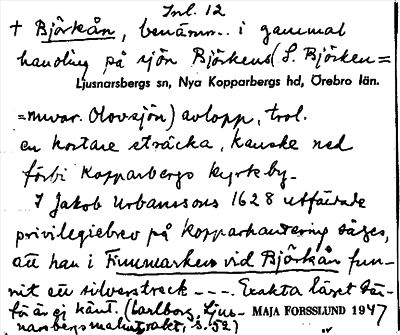 Inl. 12
+ Björkån, benämn.. i gammal
handling på sjön Björken (S. Björken =
Ljusnarsbergs sn, Nya Kopparbergs hd, Örebro län.
= nuvar. Olovsjön) avlopp, trol.
en kortare sträcka, kanske ned
förbi Kopparbergs kyrkby.
I Jakob Urbanssons 1628 utfärdade
privilegiebrev på kopparhantering säges,
att han i Finnmarken vid Björkån fun-
nit ett silverstreck ---. Exakta läget där-
för är ej känt. (Carlborg, Ljus-
MAJA FORSSLUND 1947
narsbergs malmtrakt, s. 52)